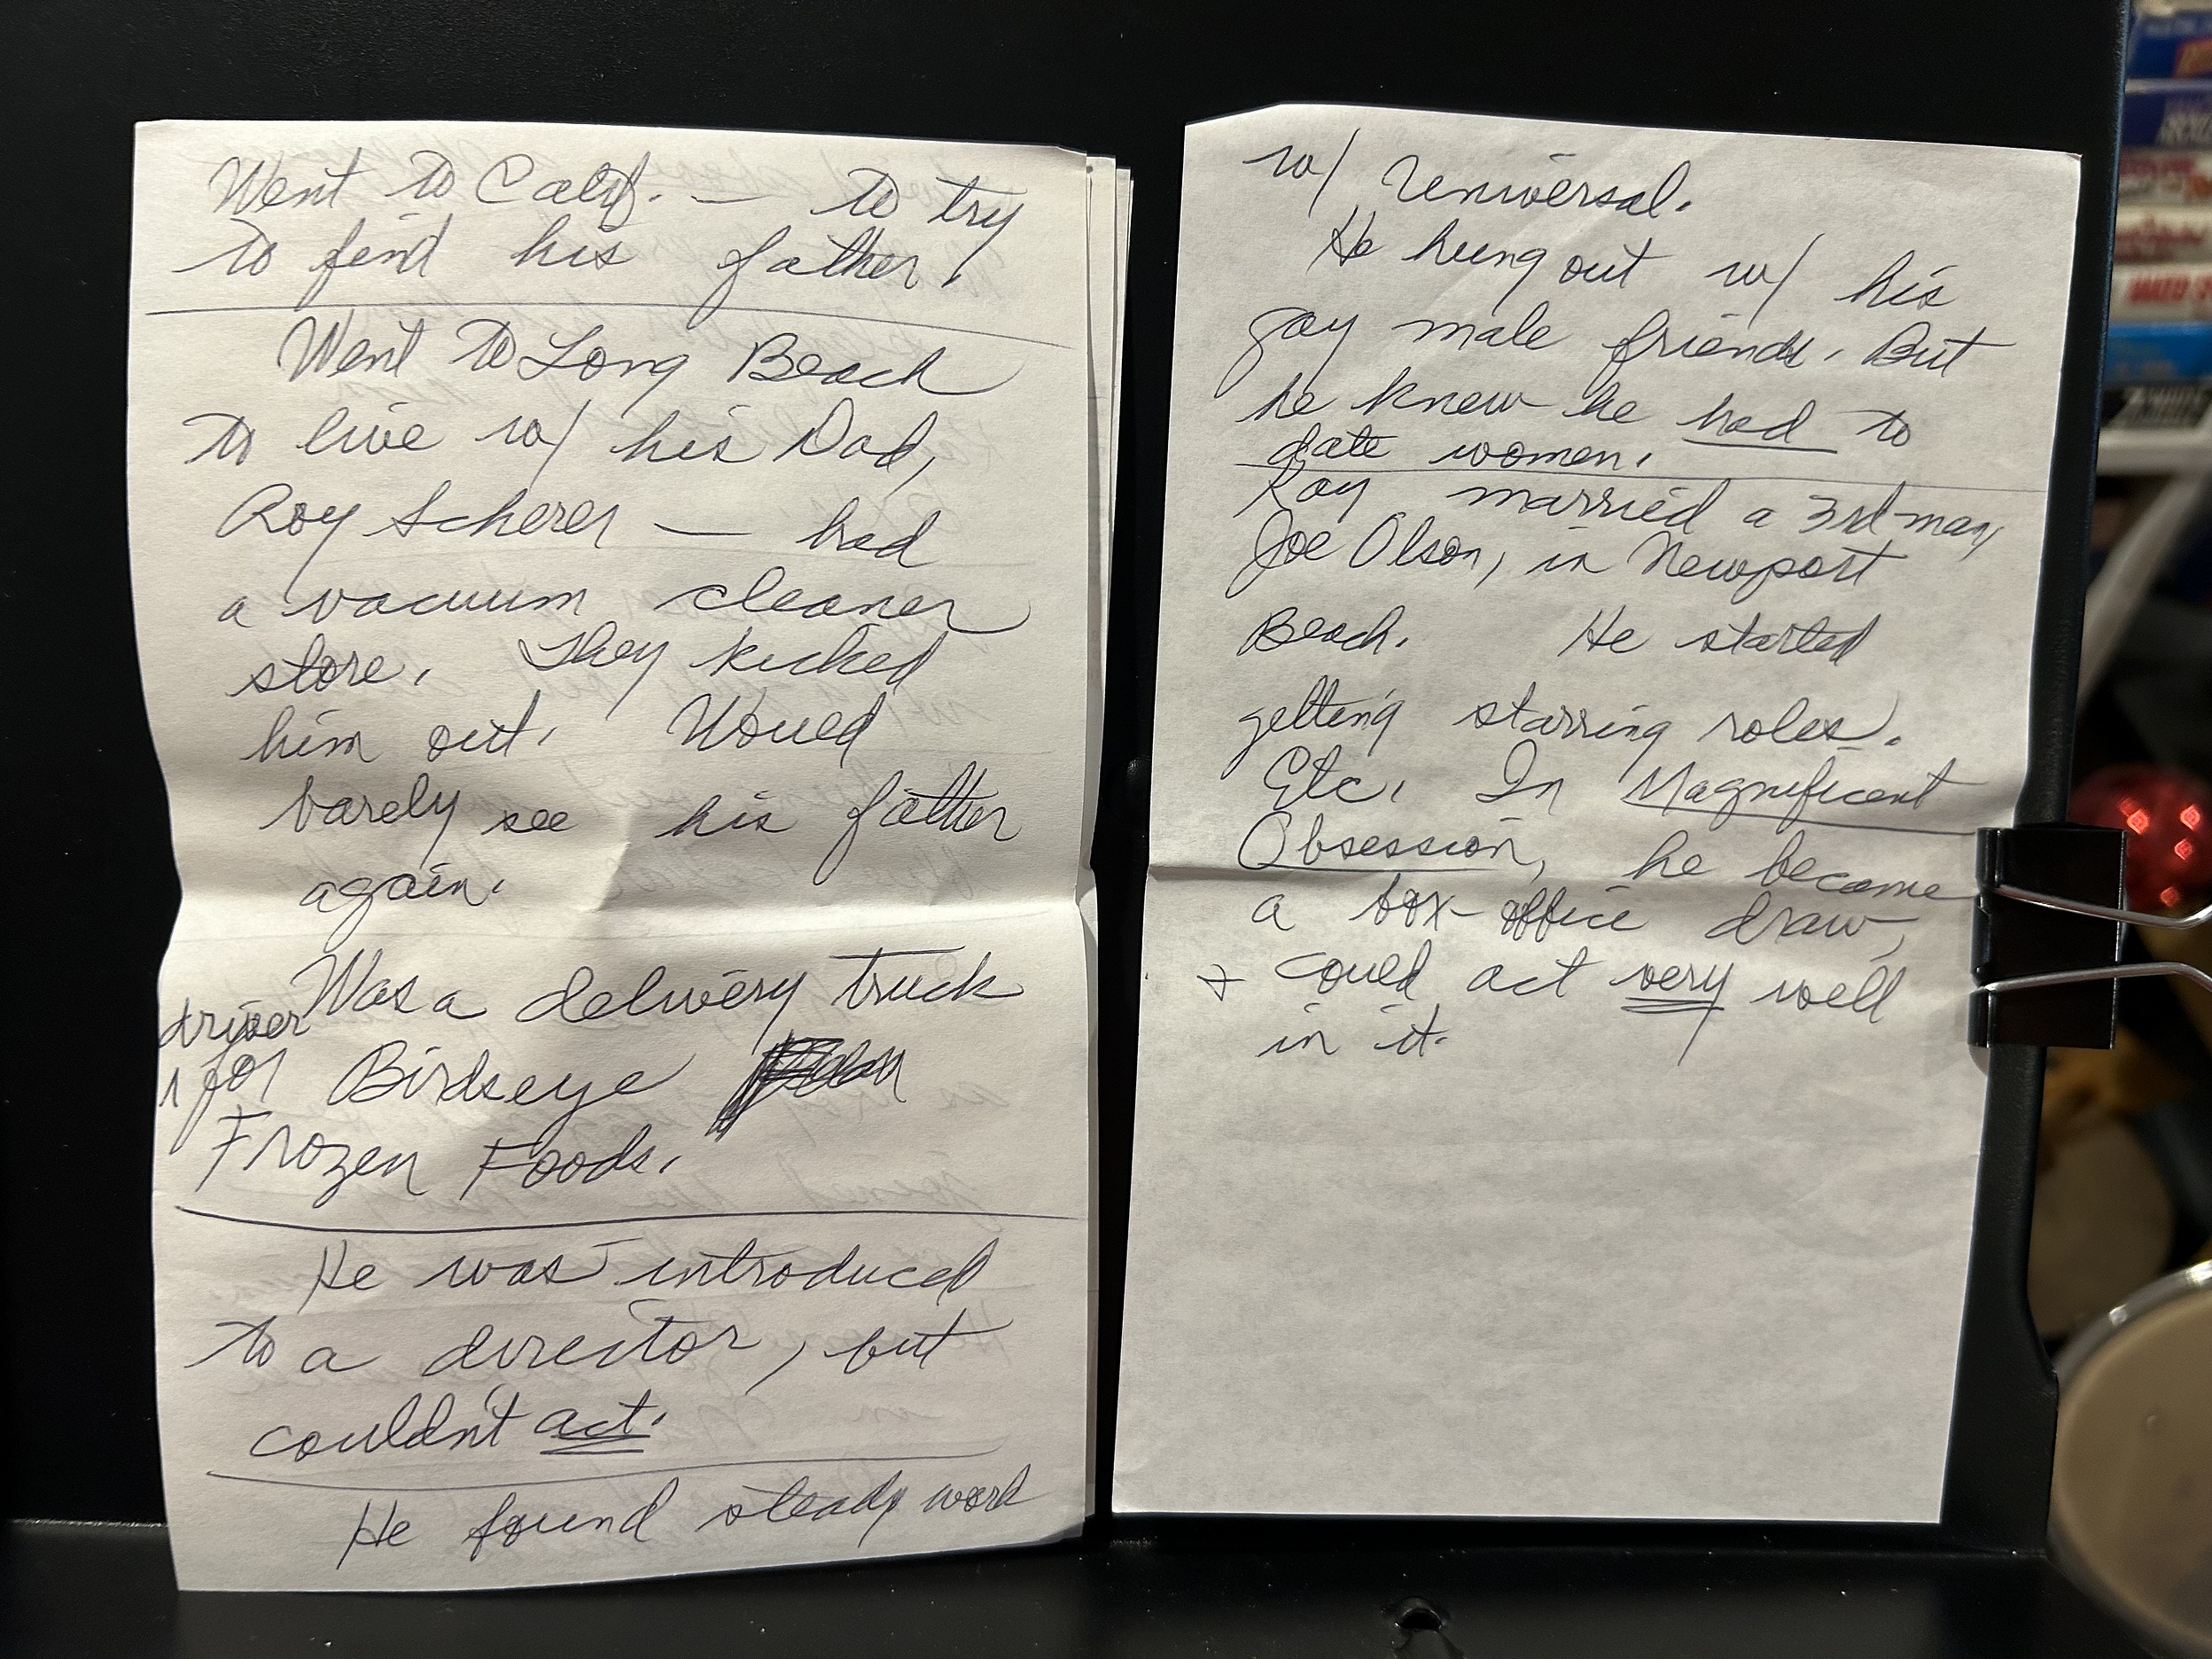 Went to Calif. — to try
to find his father.
Went to Long Beach
to live w/ his Dad,
Roy Scherer — had
a vacuum cleaner
store. They kicked
him out. Would
barely see his father
again.
Was a delivery truck
driver
for Birdseye
Frozen Foods.
He was introduced
to a director, but
couldn't act.
He found steady work
w/ Universal.
He hung out w/ his
gay male friends. But
he knew he had to
date women.
Kay married a 3rd man,
Joe Olson, in Newport
Beach. He started
getting starring roles.
Etc. In Magnificent
Obsession, he became
a box-office draw,
+ could act very well
in it.